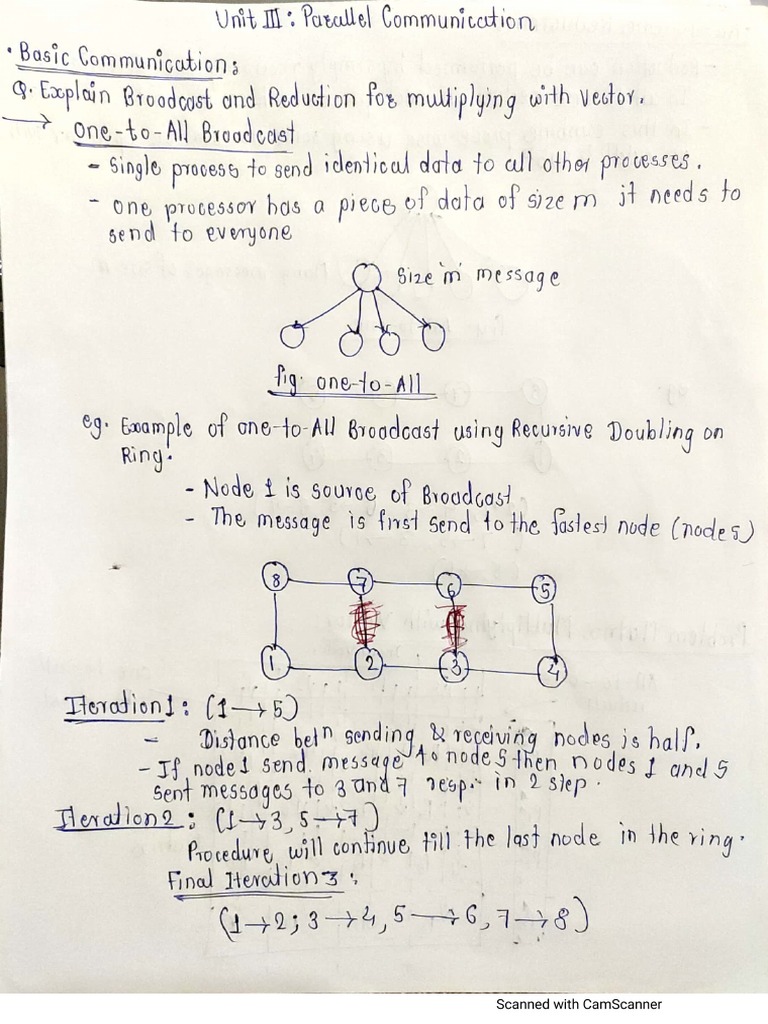 Unit III : Parallel Communication
• Basic Communication :
Q. Explain Broadcast and Reduction for multiplying with vector.
→ one-to-All Broadcast
- single process to send identical data to all other processes.
- one processor has a piece of data of size m it needs to
send to everyone
Size 'm' message
fig. one-to-All
eg. Example of one-to-All Broadcast using Recursive Doubling on
Ring.
- Node 1 is source of Broadcast
- The message is first send to the fastest node (node 5)
8 7 6 5
1 2 3 4
Iteration 1 : (1 → 5)
- Distance betn sending & receiving nodes is half.
- If node 1 send message to node 5 then nodes 1 and 5
sent messages to 3 and 7 resp. in 2 step.
Iteration 2 : (1 → 3, 5 → 7)
Procedure will continue till the last node in the ring.
Final Iteration 3 :
(1 → 2 ; 3 → 4, 5 → 6, 7 → 8)
Scanned with CamScanner